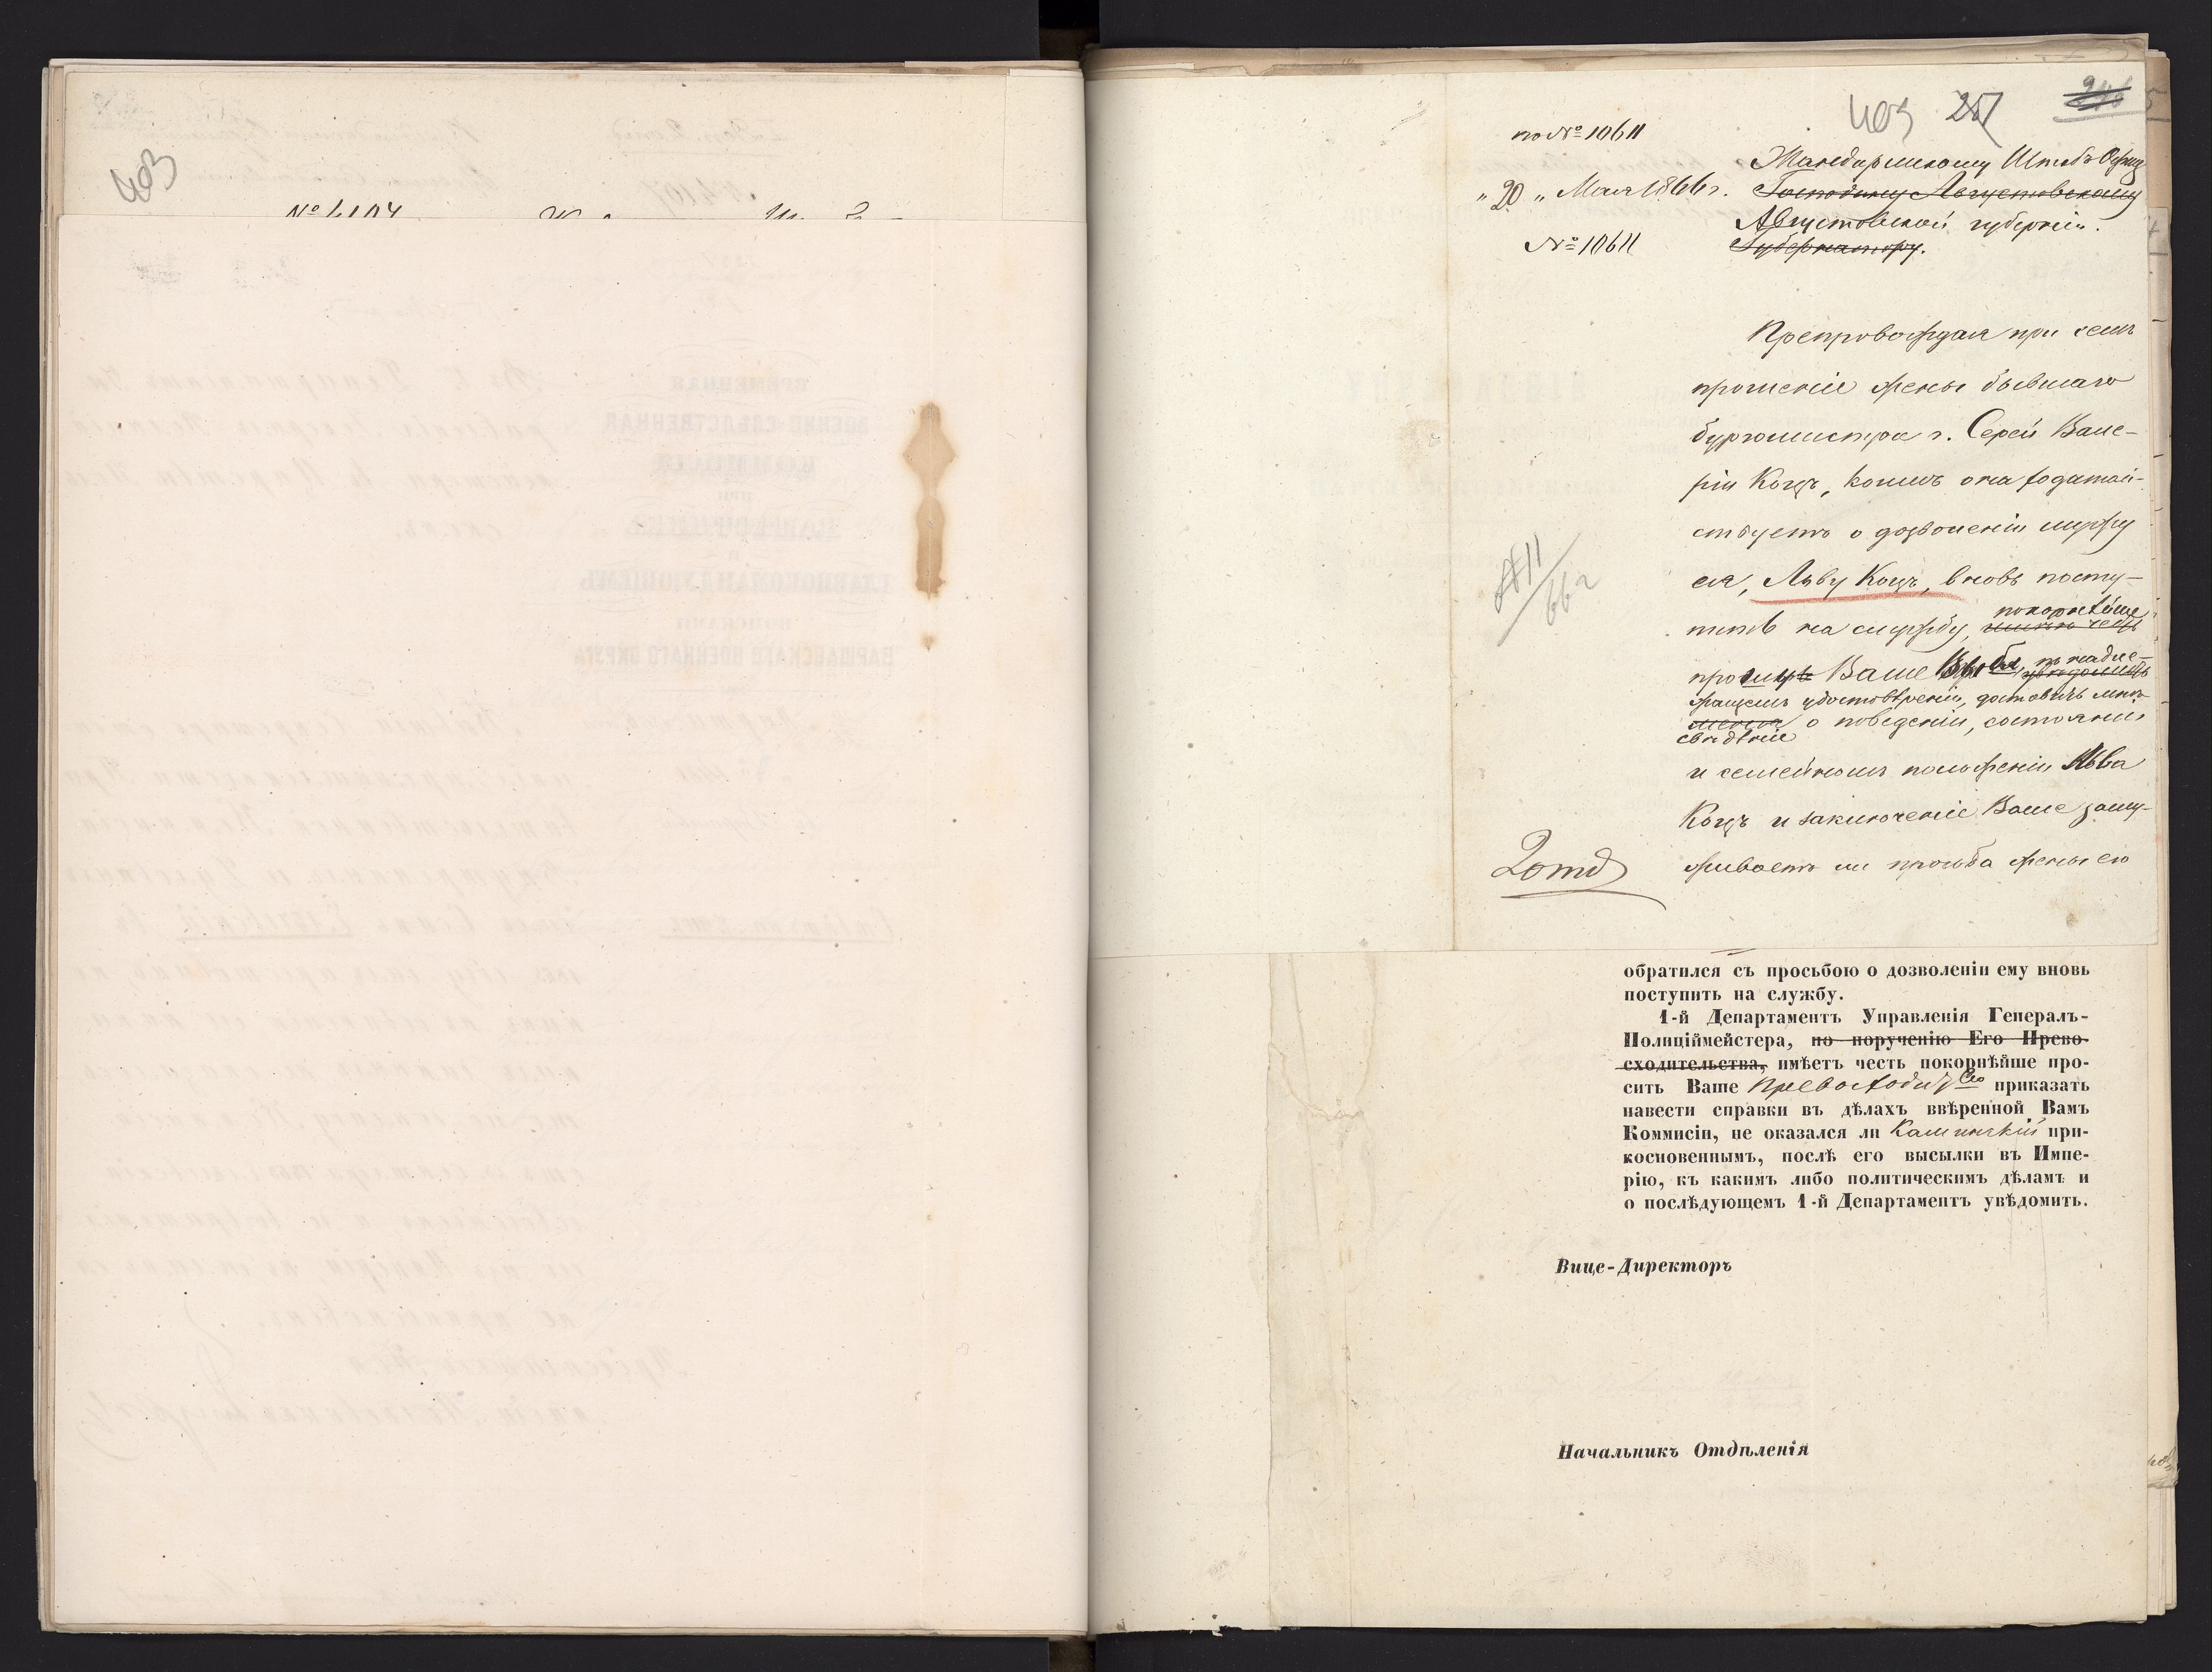 403
403 251
по № 10611
Жандармскому Штабъ Офиц
"20" Мая 1866 г. Господину Августовскому
Августовской губерніи.
№ 10611 Губернатору.
Препровождая при семъ
прошеніе жены бывшаго
бургомистра г. Серей Вале-
ріи Коцъ, коимъ она ходатай-
ствуетъ о дозволеніи мужу
ея, Льву Коцъ, вновь посту-
покорнѣйше
пить на службу, имѣю честь
прошу Ваше по надле-
жащемъ удостовѣреніи, доставить мнѣ
о поведеніи, состояніи
свѣдѣніе
и семейномъ положеніи Льва
Коцъ и заключеніе Ваше заслу-
2 отд
живаетъ ли просьба жены его
обратился съ просьбою о дозволеніи ему вновь
поступить на службу.
1-й Департаментъ Управленія Генералъ-
Полиціймейстера, по порученію Его Прево-
сходительства, имѣетъ честь покорнѣйше про-
сить Ваше Превосходит ство приказать
навести справки въ дѣлахъ ввѣренной Вамъ
Коммисіи, не оказался ли при-
косновеннымъ, послѣ его высылки въ Импе-
рію, къ какимъ либо политическимъ дѣламъ и
о послѣдующемъ 1-й Департаментъ увѣдомить.
Вице-Директоръ
Начальникъ Отдѣленія